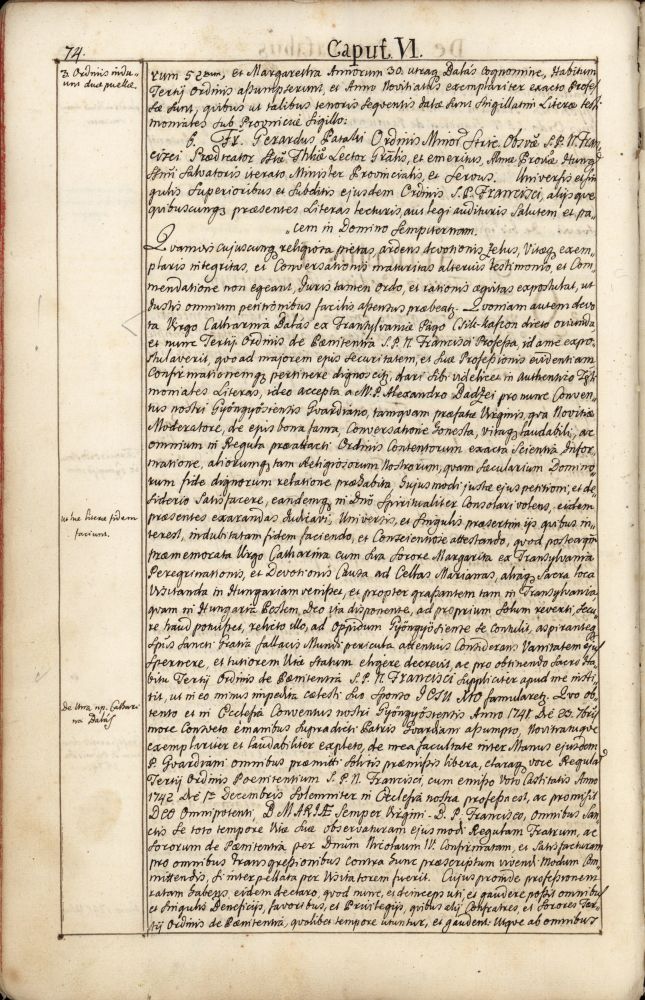 74.
Caput. VI.
3. Ordinis indu-
unt duæ puellæ.
rum 52rum, et Margaretha Annorum 30. utraq Balás cognomine, Habitum
Tertij Ordinis assumpserunt, et Anno Novitiatus exemplariter exacto Profes-
sæ sunt, quibus ut talibus tenoris sequentis datæ sunt singillatim Literæ testi-
moniales sub Provinciæ sigillo:
6. Fr. Gerardus Pataki Ordinis Minor. Stric. Obsvæ S.P.N. Fran-
cisci Prædicator Lector Gralis, et emeritus, Almæ Provæ Hungæ
Ssmi Salvatoris iterato Minister Provincialis, et servus. Universis et sin-
gulis Superioribus et Subditis ejusdem Ordinis S.P. Francisci, alijsque
quibuscunq præsentes Literas lecturis, aut legi audituris Salutem et pa-
cem in Domino sempiternam.
Quamvis cujuscunq religiosa pietas, ardens devotionis Zelus, Vitæq exem-
plaris integritas, et Conversationis maturitas alterius testimonio, et Com-
mendatione non egeant, Juris tamen ordo, et rationis æquitas expostulat, ut
Justis omnium petitionibus facilis assensus præbeatq. Quoniam autem devo-
ta Virgo Catharina Balás ex Transylvaniæ Pago dicto oriunda
et nunc Tertij Ordinis de Pœnitentia S.P.N. Francisci Professa, id a me expo-
stulaverit, quo ad majorem ejus securitatem, et suæ Professionis evidentiam
Confirmationemq pertinere dignoscitq, dari sibi videlicet in Authentico Testi-
moniales Literas, ideo accepta a V.P. Alexandro pro nunc Conven-
tus nostri Gyöngyösiensis Gvardiano, tamquam præfatæ Virginis, qva Novitiæ
Moderatore, de ejus bona fama, Conversatione honesta, vitaq laudabili, ac
omnium in Regula præattacti Ordinis Contentorum exacta Scientia Infor-
matione, aliorumq tam Religiosorum Nostrorum, quam sæcularium Domino-
rum fide dignorum relatione præhabita, hujusmodi justæ ejus petitioni, et de-
siderio satisfacere, eandemq in Dno Spiritualiter Consolari volens, eidem
præsentes exarandas judicavi, Universis, et singulis præsertim ijs quibus in-
terest, indubitatam fidem faciendo, et Conscientiose attestando, quod posteaqvam
ut hæ literæ fidem
faciunt.
præmemorata Virgo Catharina cum sua sorore Margarita ex Transylvania
Peregrinationis, et Devotionis Causa ad Cellas Marianas, aliaq Sacra loca
Visitanda in Hungariam venisset, et propter grassantem tam in Transylvania
qvam in Hungaria Pestem, Deo ita disponente, ad proprium solum reverti, secu-
re haud potuisset, relicto illo, ad Oppidum Gyöngyösiense se contulit, aspiranteq
Spus Sancti Gratia fallacis Mundi pericula attentius Considerans Vanitatem ejus
spernere, et tutiorem Vitæ statum eligere decrevit, ac pro obtinendo sacro Ha-
bitu Tertij Ordinis de Pœnitentia S.P.N. Francisci suppliciter apud me insti-
tit, ut in eo minus impedita cælesti suo sponso JESU XTO famularetq. Quo ob-
De Una, np. Cathari-
na Balás
tento et in Ecclesia Conventus nostri Gyöngyösiensis Anno 1741 Die 23. 7bris
more Consveto e manibus Supradicti Patris Gvardiani assumpto, Novitiatuque
exemplariter et laudabiliter expleto, de mea facultate inter Manus ejusdem
P. Gvardiani omnibus præmitti solitis præmissis libera, claraq voce Regulam
Tertij Ordinis Poenitentium S.P.N. Francisci, cum emisso Voto Castitatis Anno
1742 Die 1a Decembris Solemniter in Ecclesia nostra professa est, ac promisit
DEO Omnipotenti, B MARIÆ Semper Virgini B. P. Francisco, Omnibus San-
ctis se toto tempore Vitæ suæ observaturam ejusmodi Regulam Fratrum, ac
Sororum de Pœnitentia per Dnum Nicolaum IV. Confirmatam, et Satisfacturam
pro omnibus transgressionibus contra hunc præscriptum vivendi Modum Com-
mittendis, si interpellata per Visitatorem fuerit. Cujus proinde professionem
ratam habens, eidem declaro, quod nunc, et deinceps uti, et gaudere possit omnibus
et singulis Beneficijs, favoribus, et Privilegijs, quibus alij Confratres, et Sorores Ter-
tij Ordinis de Pœnitentia, quolibet tempore utuntur, et gaudent. Utque ab omnibus